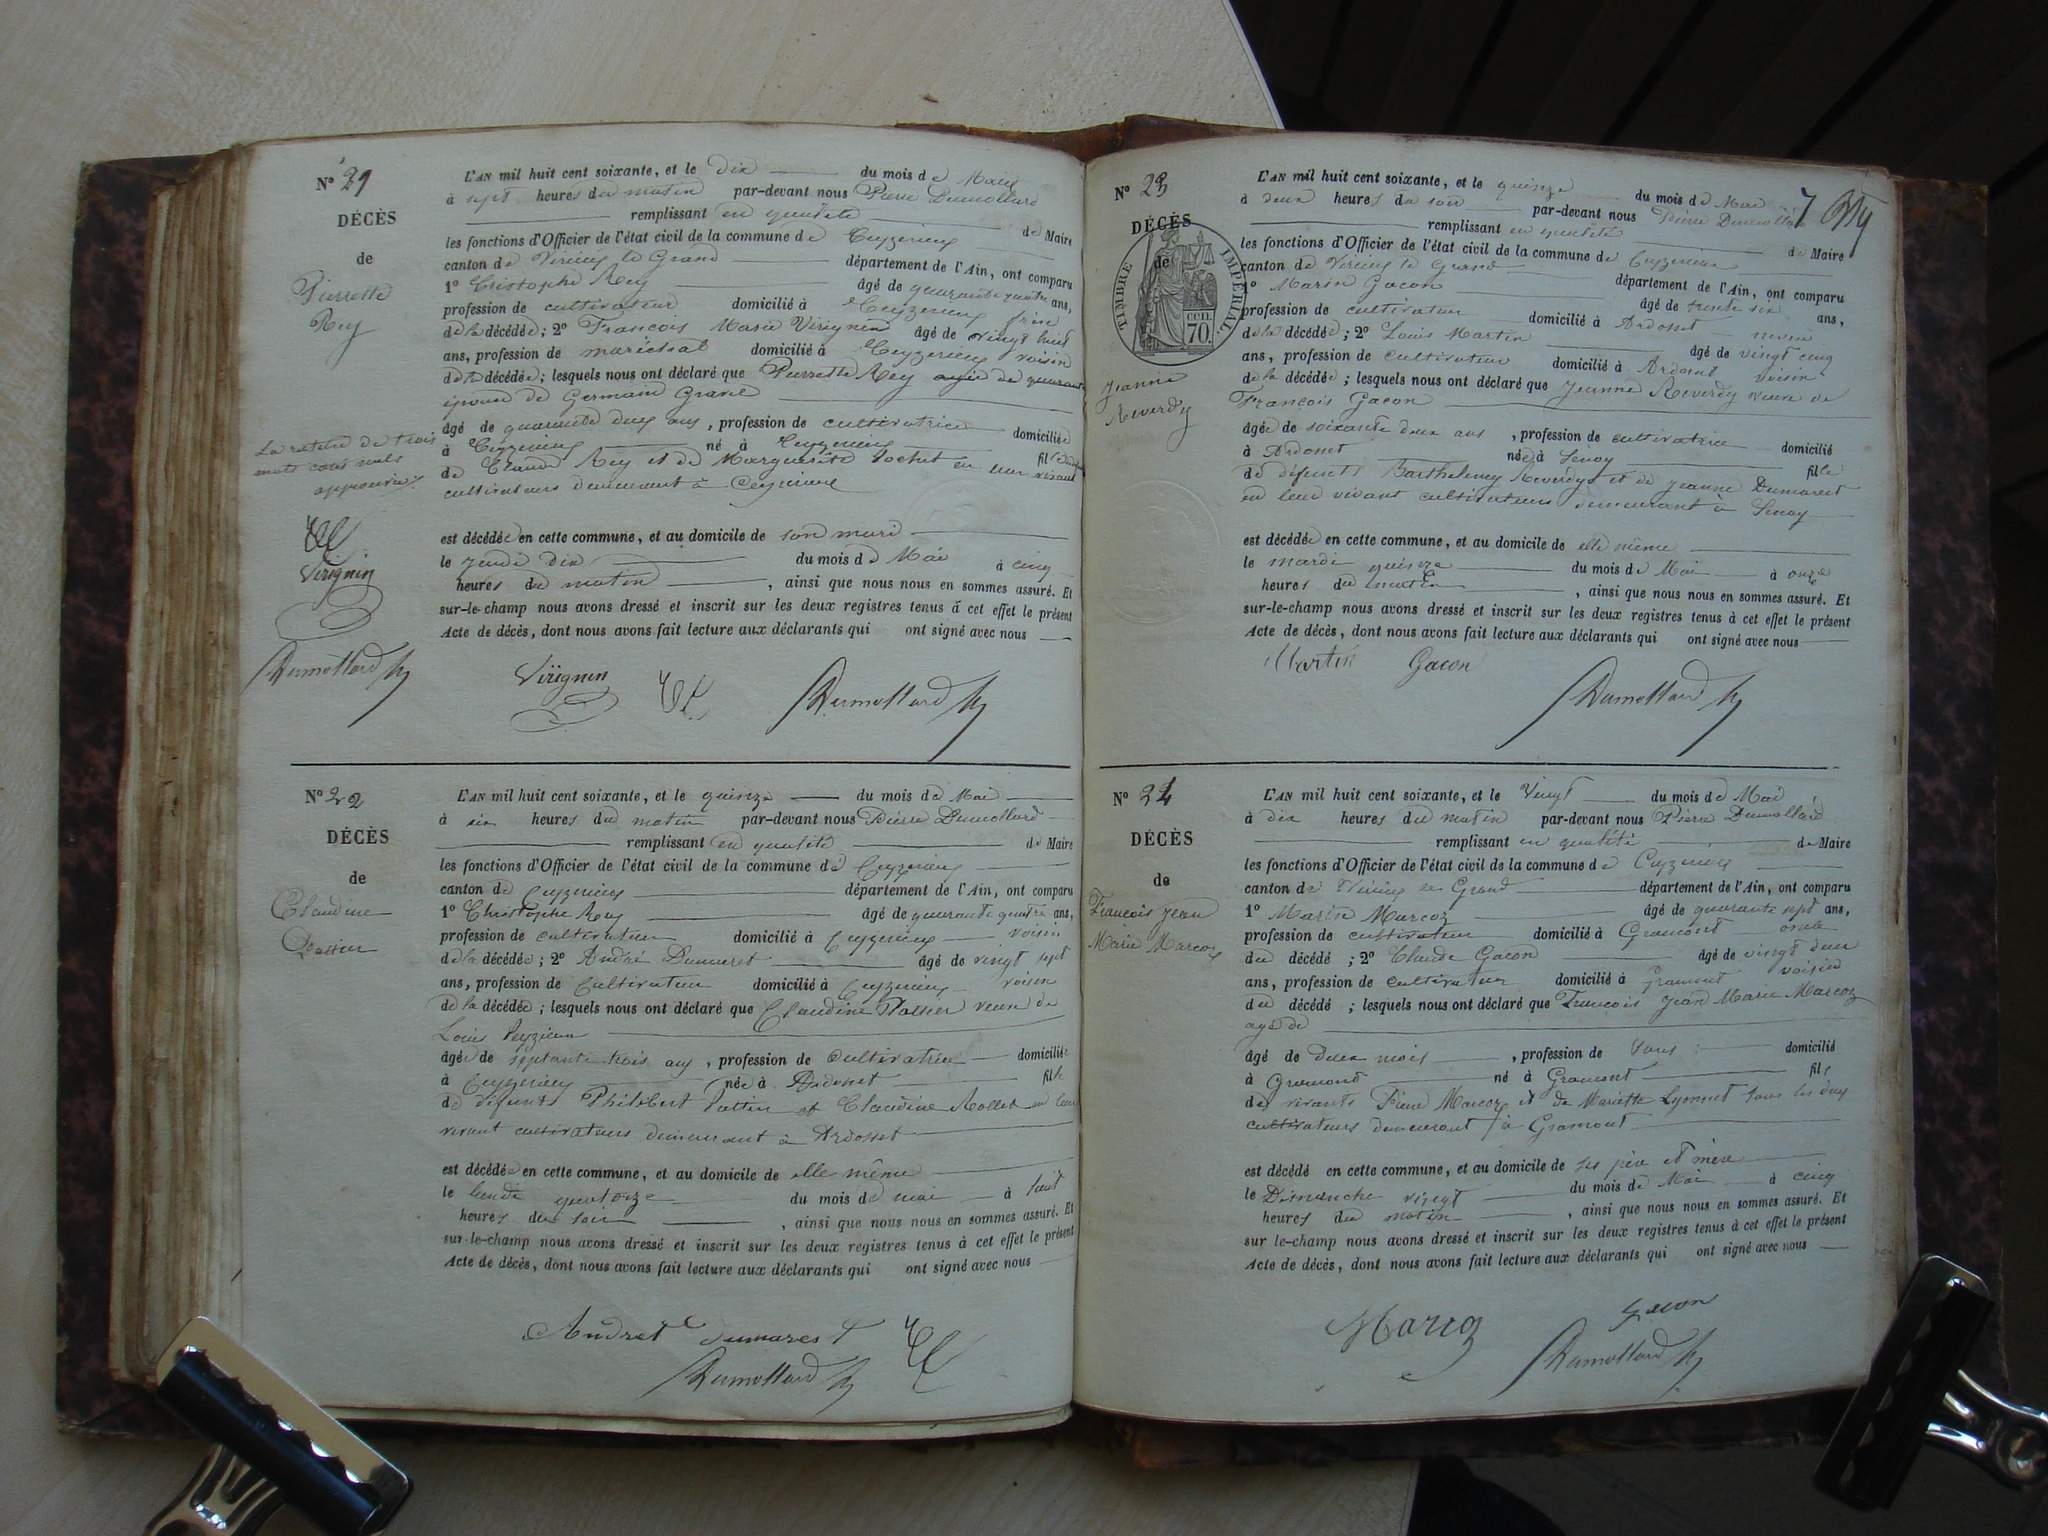 Nº 21
DÉCÈS
de
Pierrette
Rey
L'AN mil huit cent soixante, et le dix du mois de Mai
à sept heures du matin par-devant nous Pierre Dumollard
remplissant en qualité de Maire
les fonctions d'Officier de l'état civil de la commune de Ceyzerieu
canton de Virieu le Grand département de l'Ain, ont comparu
1º Cristophe Rey âgé de quarante quatre ans,
profession de cultivateur domicilié à Ceyzerieu frère
de la décédée; 2º François Marie Virignin âgé de vingt huit
ans, profession de maréchal domicilié à Ceyzerieu voisin
de la décédée; lesquels nous ont déclaré que Pierrette Rey agée de quarante
épouse de Germain Gravel
âgé de quarante deux ans, profession de cultivatrice domiciliée
à Ceyzerieu né à Ceyzerieu fille
de Claude Rey et de Marguerite Pochet en leur vivant
cultivateurs demeurant à Ceyzerieu
La rature de trois
mots comme nuls
approuvée
est décédée en cette commune, et au domicile de son mari
le jeudi dix du mois de Mai à cinq
heures du matin, ainsi que nous nous en sommes assuré. Et
sur-le-champ nous avons dressé et inscrit sur les deux registres tenus à cet effet le présent
Acte de décès, dont nous avons fait lecture aux déclarants qui ont signé avec nous
Virignin
Dumollard
Virignin Dumollard
Nº 22
DÉCÈS
de
Claudine
L'AN mil huit cent soixante, et le quinze du mois de Mai
à six heures du matin par-devant nous Pierre Dumollard
remplissant en qualité de Maire
les fonctions d'Officier de l'état civil de la commune de Ceyzerieu
canton de Ceyzerieu département de l'Ain, ont comparu
1º Christophe Rey âgé de quarante quatre ans,
profession de cultivateur domicilié à Ceyzerieu voisin
de la décédée; 2º André Dumarest âgé de vingt sept
ans, profession de cultivateur domicilié à Ceyzerieu voisin
de la décédée; lesquels nous ont déclaré que Claudine veuve de
Louis
âgée de septante trois ans, profession de cultivatrice domiciliée
à Ceyzerieu née à Ardosset fille
de défunts Philibert et Claudine Rollet en leur
vivant cultivateurs demeurant à Ardosset
est décédée en cette commune, et au domicile de elle même
le lundi quatorze du mois de mai à huit
heures du soir, ainsi que nous nous en sommes assuré. Et
sur-le-champ nous avons dressé et inscrit sur les deux registres tenus à cet effet le présent
Acte de décès, dont nous avons fait lecture aux déclarants qui ont signé avec nous
André dumarest
Dumollard
Nº 23
DÉCÈS
de
TIMBRE IMPÉRIAL
CEN. 70.
Jeanne
Reverdy
L'AN mil huit cent soixante, et le quinze du mois de Mai
à deux heures du soir par-devant nous Pierre Dumollard
remplissant en qualité de Maire
les fonctions d'Officier de l'état civil de la commune de Ceyzerieu
canton de Virieu le Grand département de l'Ain, ont comparu
1º Marin Gacon âgé de trente six ans,
profession de cultivateur domicilié à Ardosset neveu
de la décédée; 2º Louis Martin âgé de vingt cinq
ans, profession de cultivateur domicilié à Ardosset voisin
de la décédée; lesquels nous ont déclaré que Jeanne Reverdy veuve de
François Gacon
âgée de soixante deux ans, profession de cultivatrice domicilié
à Ardosset née à fille
de défunts Barthelemy Reverdy et de Jeanne Dumarest
en leur vivant cultivateurs demeurant à
est décédée en cette commune, et au domicile de elle même
le mardi quinze du mois de Mai à onze
heures du matin, ainsi que nous nous en sommes assuré. Et
sur-le-champ nous avons dressé et inscrit sur les deux registres tenus à cet effet le présent
Acte de décès, dont nous avons fait lecture aux déclarants qui ont signé avec nous
Martin Gacon
Dumollard
Nº 24
DÉCÈS
de
François Jean
Marie Marcoz
L'AN mil huit cent soixante, et le Vingt du mois de Mai
à dix heures du matin par-devant nous Pierre Dumollard
remplissant en qualité de Maire
les fonctions d'Officier de l'état civil de la commune de Ceyzerieu
canton de Virieu le Grand département de l'Ain, ont comparu
1º Marin Marcoz âgé de quarante sept ans,
profession de cultivateur domicilié à Gramont oncle
du décédé; 2º Claude Gacon âgé de vingt deux
ans, profession de cultivateur domicilié à Gramont voisin
du décédé; lesquels nous ont déclaré que François Jean Marie Marcoz
agé de
âgé de deux mois, profession de sans domicilié
à Gramond né à Gramont fils
des vivants Pierre Marcoz et de Mariette Lyonnet tous les deux
cultivateurs demeurant à Gramont
est décédé en cette commune, et au domicile de ses père et mère
le Dimanche vingt du mois de Mai à cinq
heures du matin, ainsi que nous nous en sommes assuré. Et
sur le-champ nous avons dressé et inscrit sur les deux registres tenus à cet effet le présent
Acte de décès, dont nous avons fait lecture aux déclarants qui ont signé avec nous
Marcoz Gacon
Dumollard